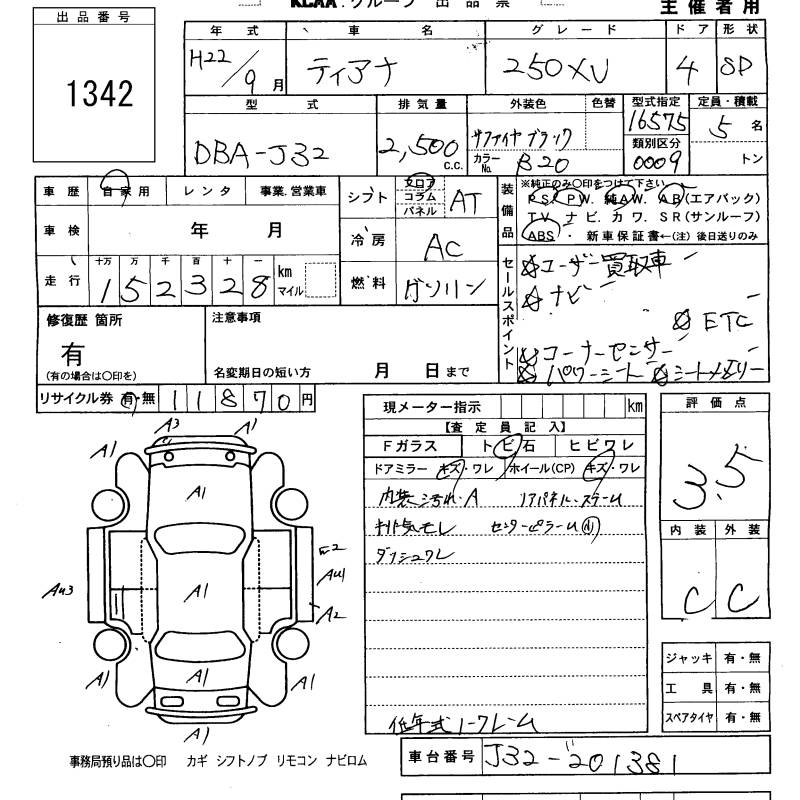 KCAA.グループ 出品票
主催者用
出品番号
1342
年式 車名 グレード ドア 形状
H22/9月 ティアナ 250XV 4 SD
型式 排気量 外装色 色替 型式指定 定員・積載
DBA-J32 2,500 c.c. サファイヤブラック 16575 5名
カラーNo. B20 類別区分 0009 トン
車歴 自家用 レンタ 事業.営業車
シフト フロア コラム パネル AT
車検 年 月
冷房 AC
走行 十万 万 千 百 十 一
152328 km マイル
燃料 ガソリン
装備品 ※純正のみ〇印をつけて下さい
PS. PW. 純AW. AB(エアバック)
TV. ナビ. カワ. SR(サンルーフ)
ABS ・ 新車保証書←(注) 後日送りのみ
セールスポイント
☆ユーザー買取車
☆ナビ
☆ETC
☆コーナーセンサー
☆パワーシート ☆シートメモリー
修復歴 箇所
有
(有の場合は〇印を)
注意事項
名変期日の短い方 月 日まで
リサイクル券 有・無 11870円
現メーター指示 km
【査定員記入】
Fガラス トビ石 ヒビワレ
ドアミラー キズ・ワレ ホイール(CP) キズ・ワレ
内装ヨゴレ・A
排気モレ センターピラー
ダッシュワレ
評価点
3.5
内装 外装
C C
A3
A1 A1
A1
A1
A3
AU1
A2
A1 A1 A1
A1
ジャッキ 有・無
工具 有・無
スペアタイヤ 有・無
低年式ノークレーム
事務局預り品は〇印 カギ シフトノブ リモコン ナビロム
車台番号 J32-201381